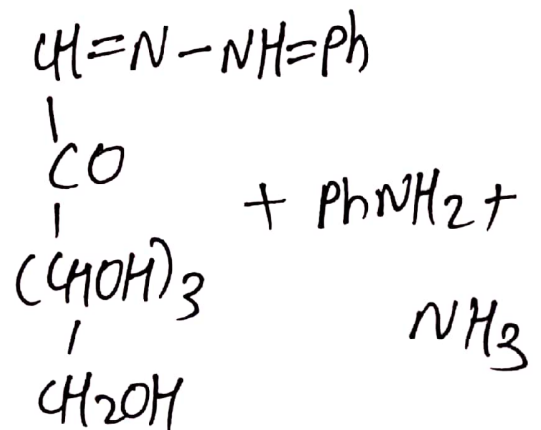 CH=N-NH=Ph
|
CO
|
(CHOH)3
|
CH2OH
+ PhNH2+
NH3